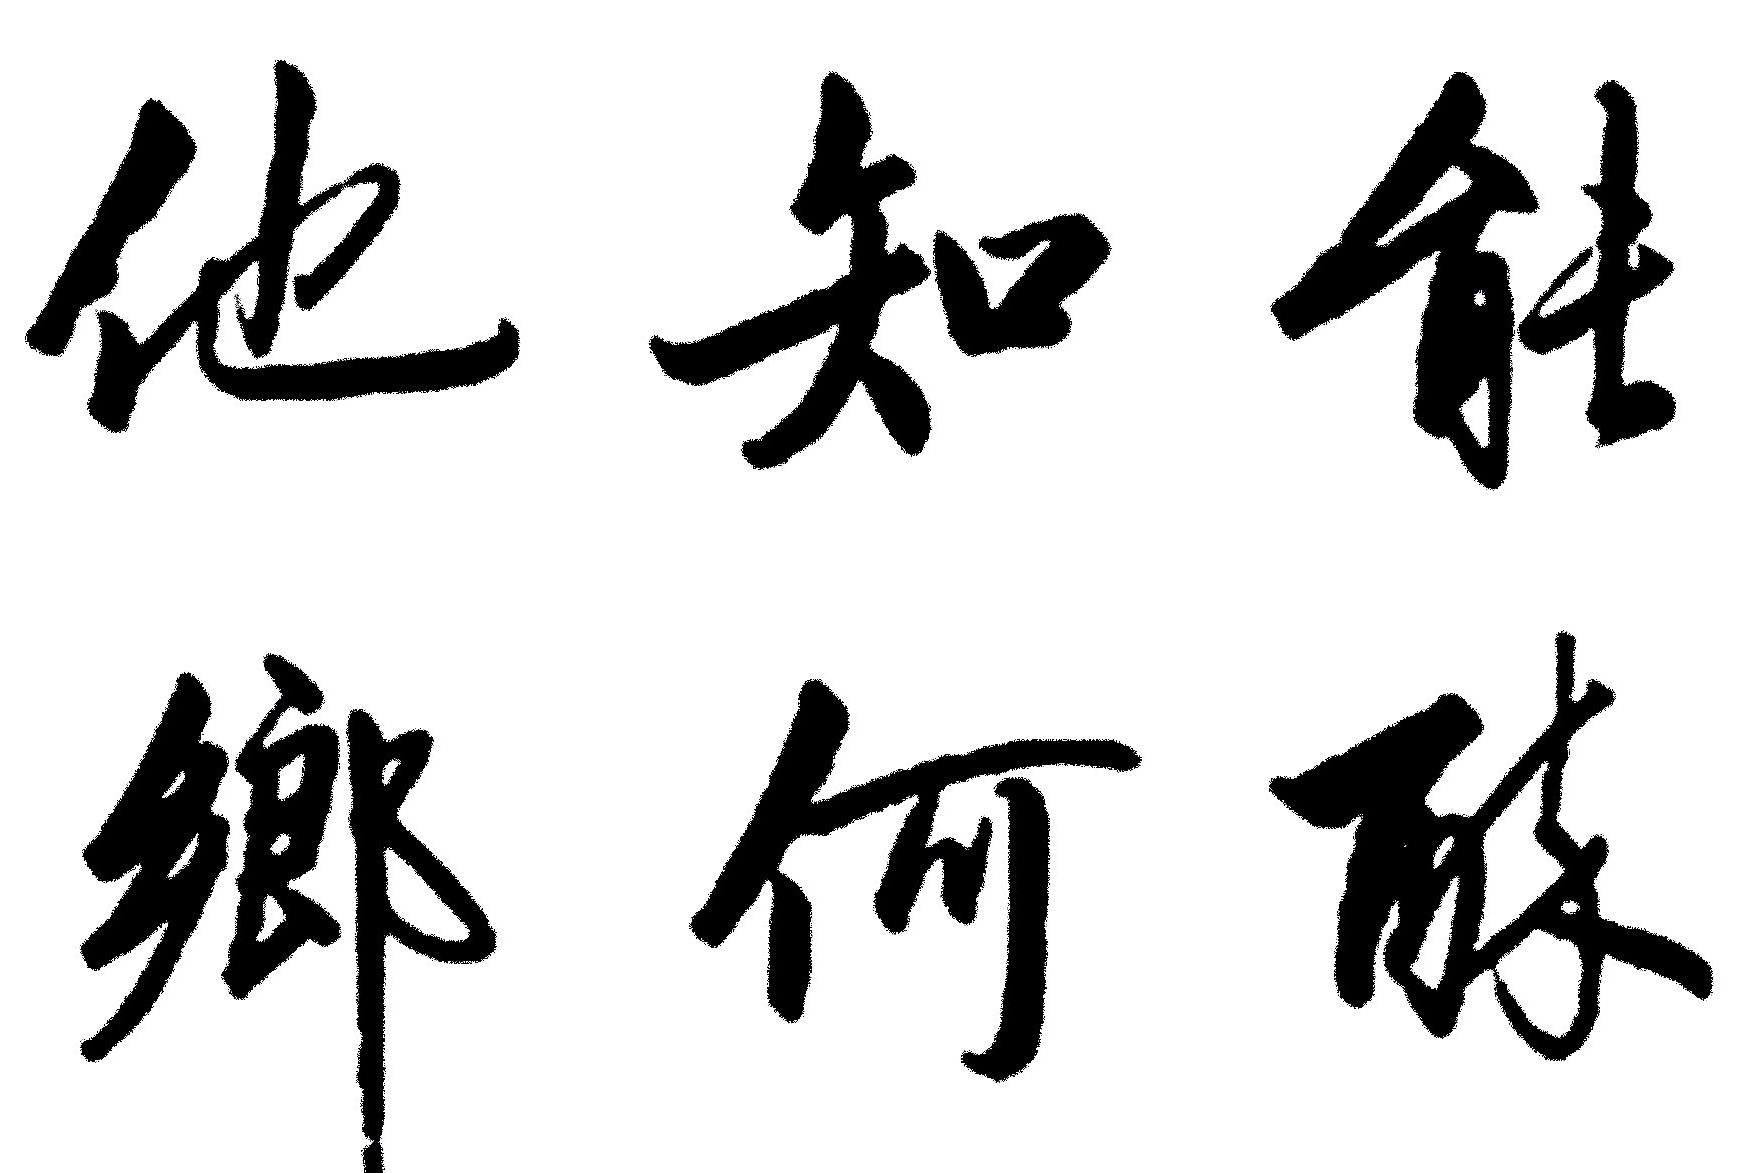 能醉
知何
他鄉